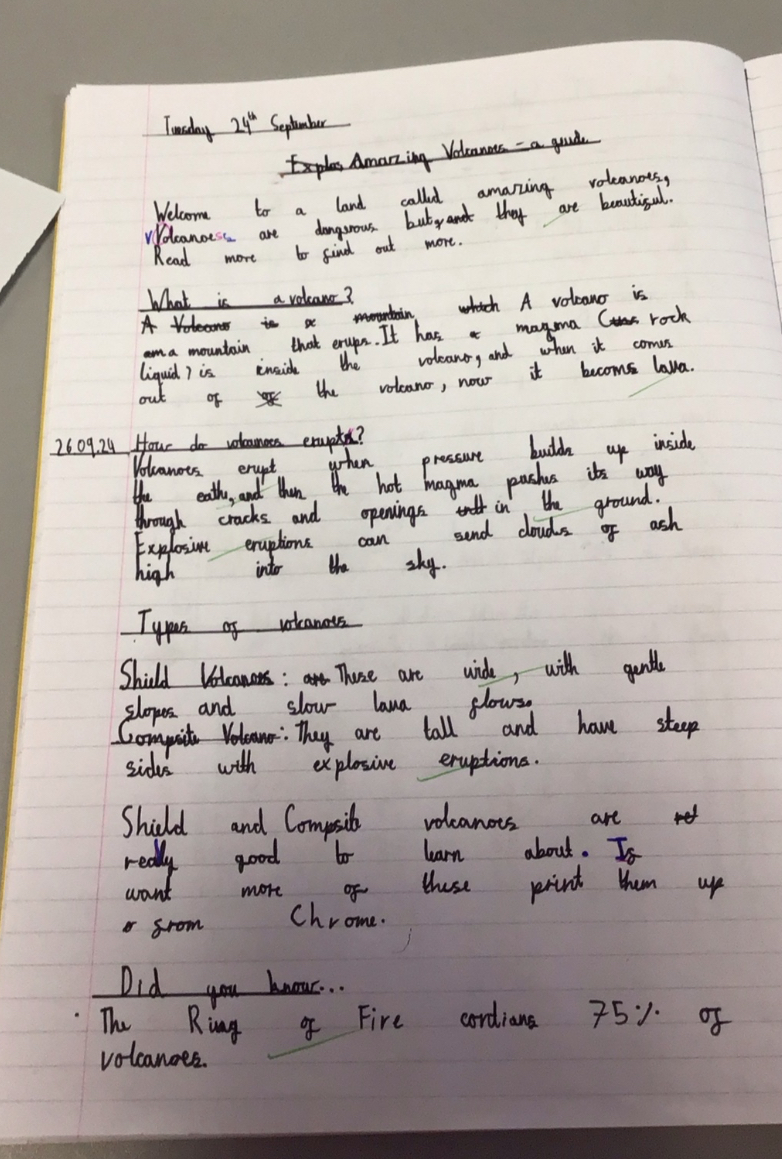 Tuesday 24th September
Explos Amazing Volcanoes - a guide
Welcome to a land called amazing volcanoes,
Volcanoes are dangerous but, and they are beautiful.
Read more to find out more.
What is a volcano?
A Volcano is a mountain which A volcano is
am a mountain that erups. It has a magma rock
liquid? is inside the volcano, and when it comes
out of of the volcano, now it becoms lava.
26.09.24 How do volcanoes erupt?
Volcanoes erupt when pressure builds up inside
the eath, and then the hot magma pushes its way
through cracks and openings in the ground.
Explosive eruptions can send clouds of ash
high into the sky.
Types of volcanoes
Shield Volcanoes: are These are wide, with gentle
slopes and slow lava flows.
Composite Volcano: They are tall and have steep
sides with explosive eruptions.
Shield and Compsite volcanoes are ret
really good to learn about. If
want more of these print them up
from Chrome.
Did you know...
The Ring of Fire cordians 75% of
volcanoes.